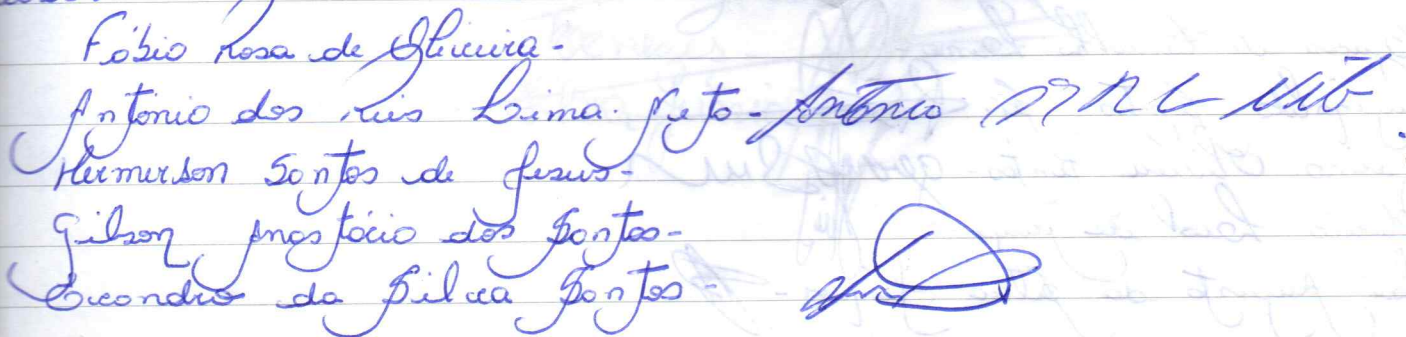 Fábio Rosa de Oliveira-
Antônio dos Reis Lima Neto- Antônio
Hermerson Santos de Jesus-
Gilson Anastácio dos Santos-
Evandro da Silva Santos-